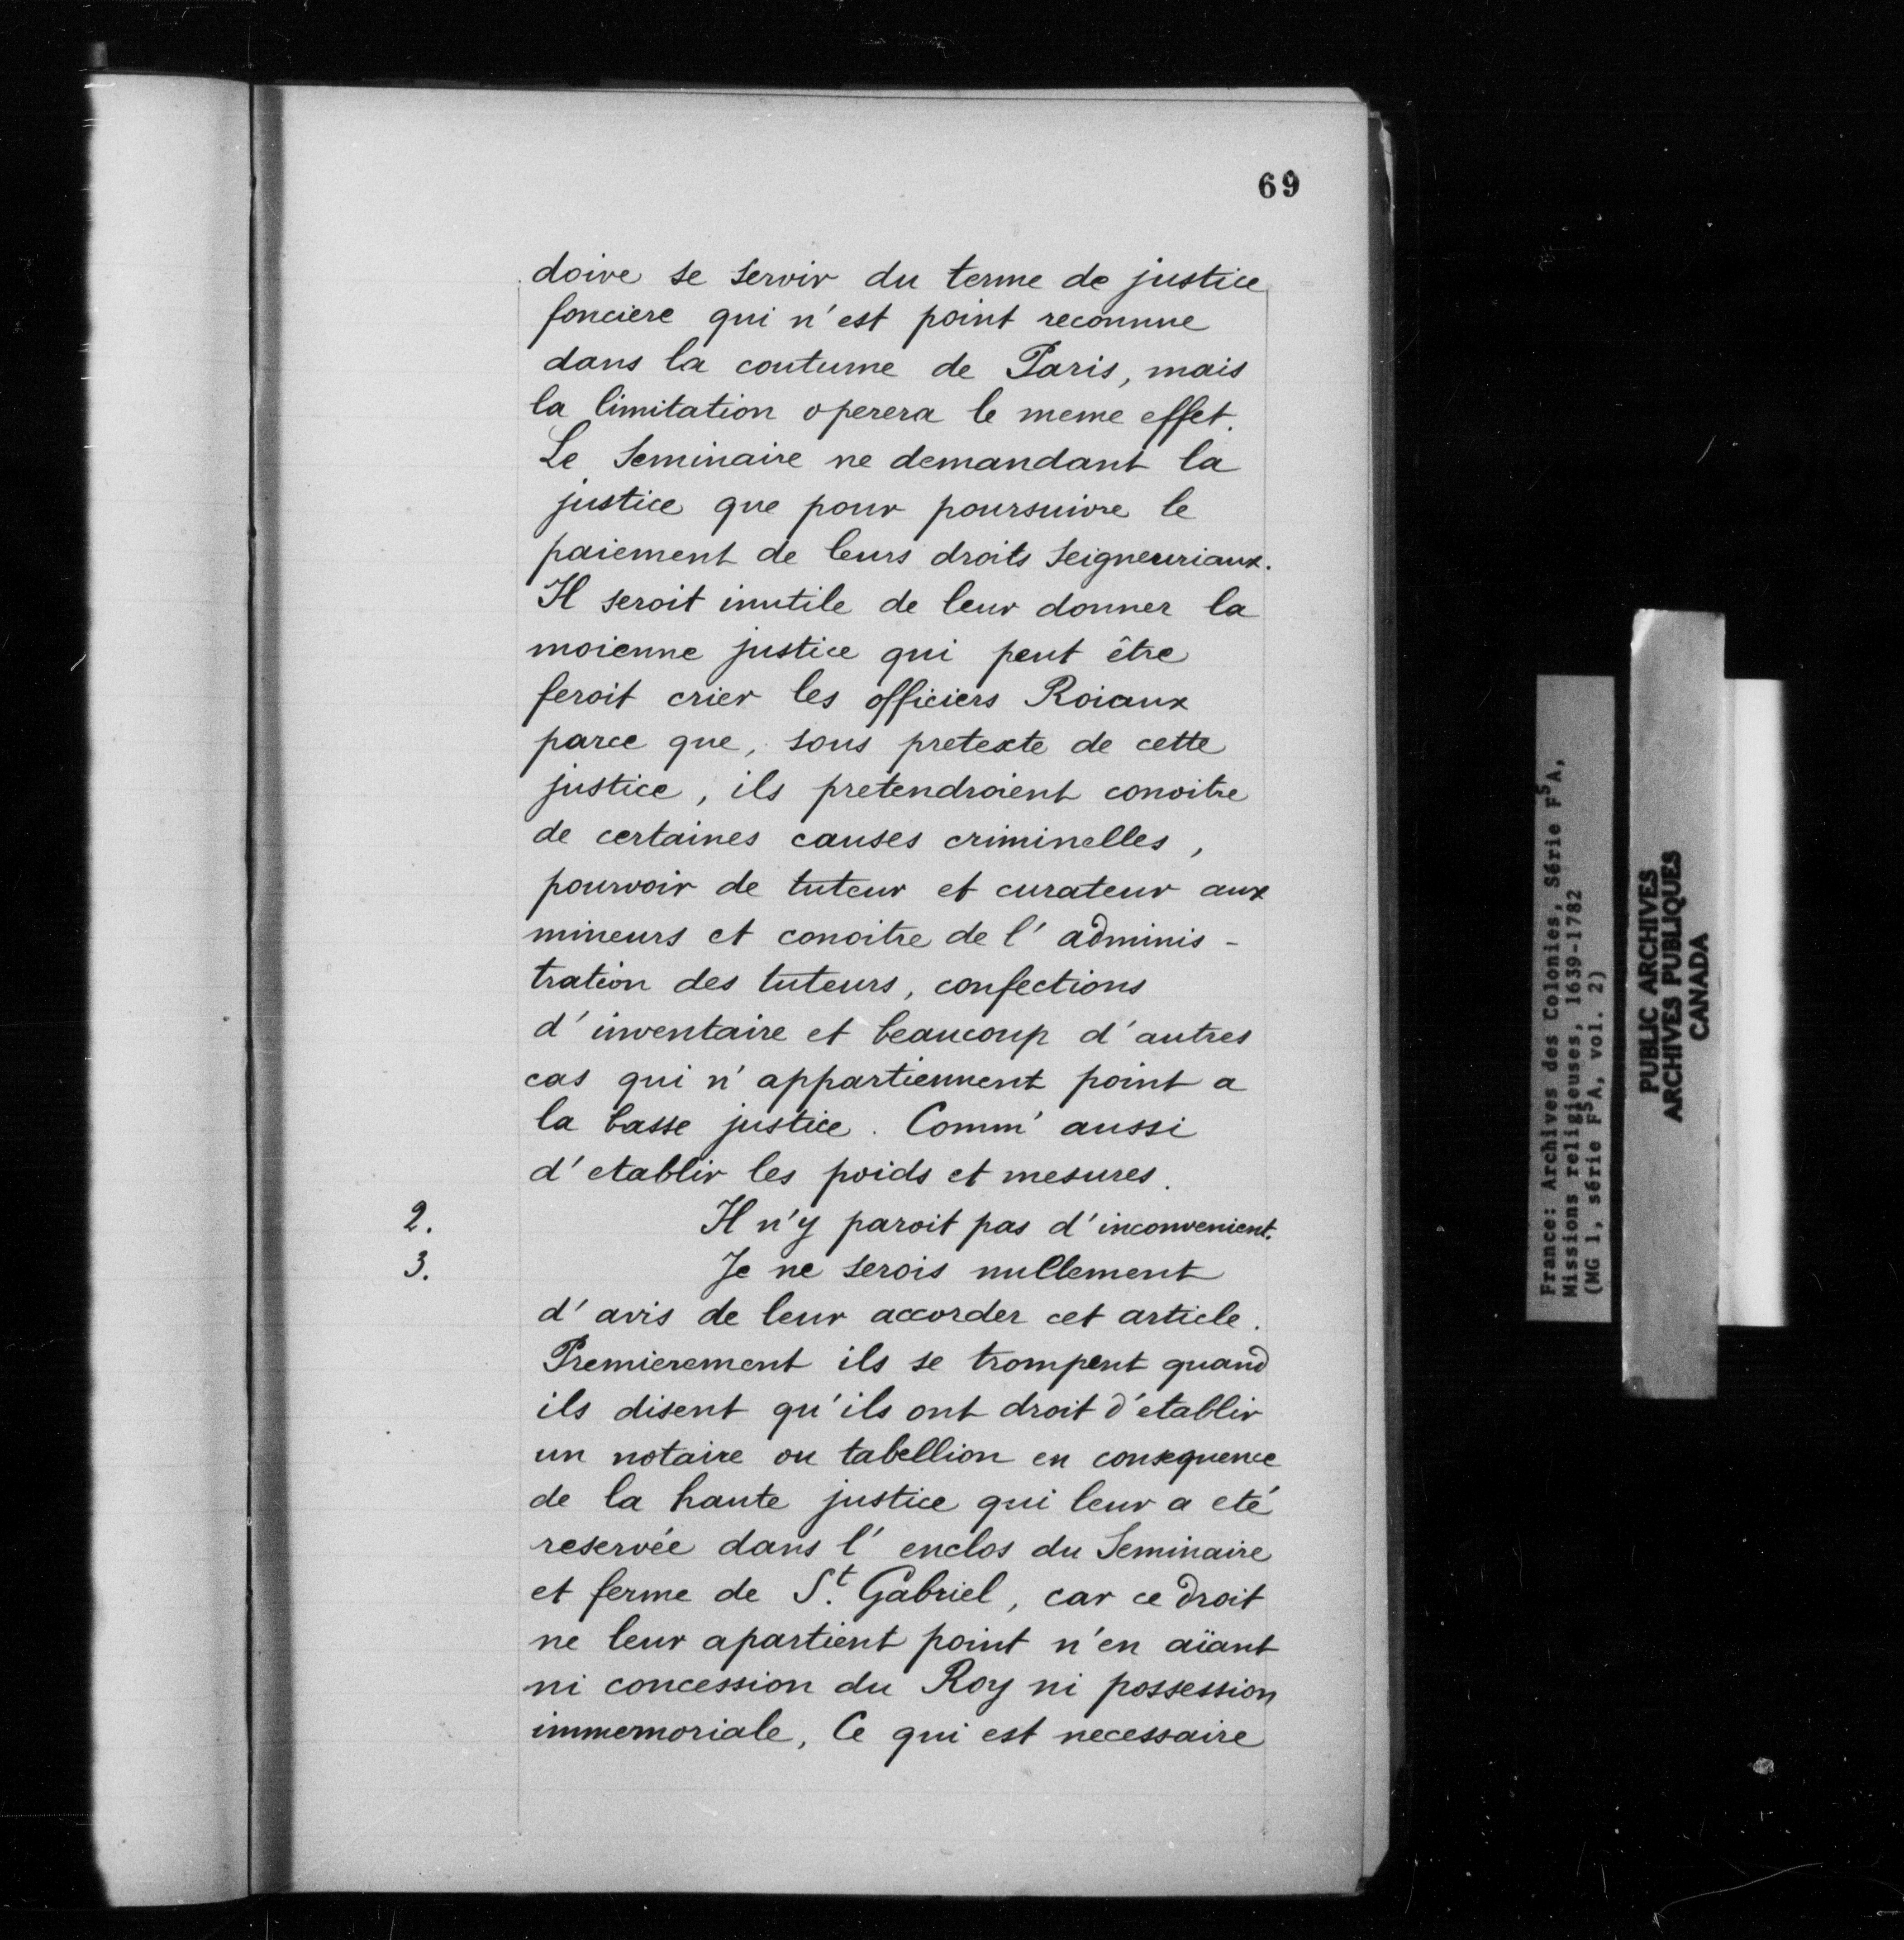 69
doive se servir du terme de justice
fonciere qui n'est point reconnue
dans la coutume de Paris, mais
la limitation operera le meme effet.
Le Seminaire ne demandant la
justice que pour poursuivre le
paiement de leurs droits seigneuriaux.
Il seroit inutile de leur donner la
moienne justice qui peut être
feroit crier les officiers Roiaux
parce que, sous pretexte de cette
justice, ils pretendroient conoitre
de certaines causes criminelles,
pourvoir de tuteur et curateur aux
mineurs et conoitre de l'adminis-
tration des tuteurs, confections
d'inventaire et beaucoup d'autres
cas qui n'appartiennent point a
la basse justice. Comm' aussi
d'etablir les poids et mesures.
2. Il n'y paroit pas d'inconvenient.
3. Je ne serois nullement
d'avis de leur accorder cet article.
Premierement ils se trompent quand
ils disent qu'ils ont droit d'établir
un notaire ou tabellion en consequence
de la haute justice qui leur a eté
reservée dans l'enclos du Seminaire
et ferme de St. Gabriel, car ce droit
ne leur apartient point n'en aïant
ni concession du Roy ni possession
immemoriale, Ce qui est necessaire
France: Archives des Colonies, Série F5A,
Missions religieuses, 1639-1782
(MG 1, série F5A, vol. 2)
PUBLIC ARCHIVES
ARCHIVES PUBLIQUES
CANADA